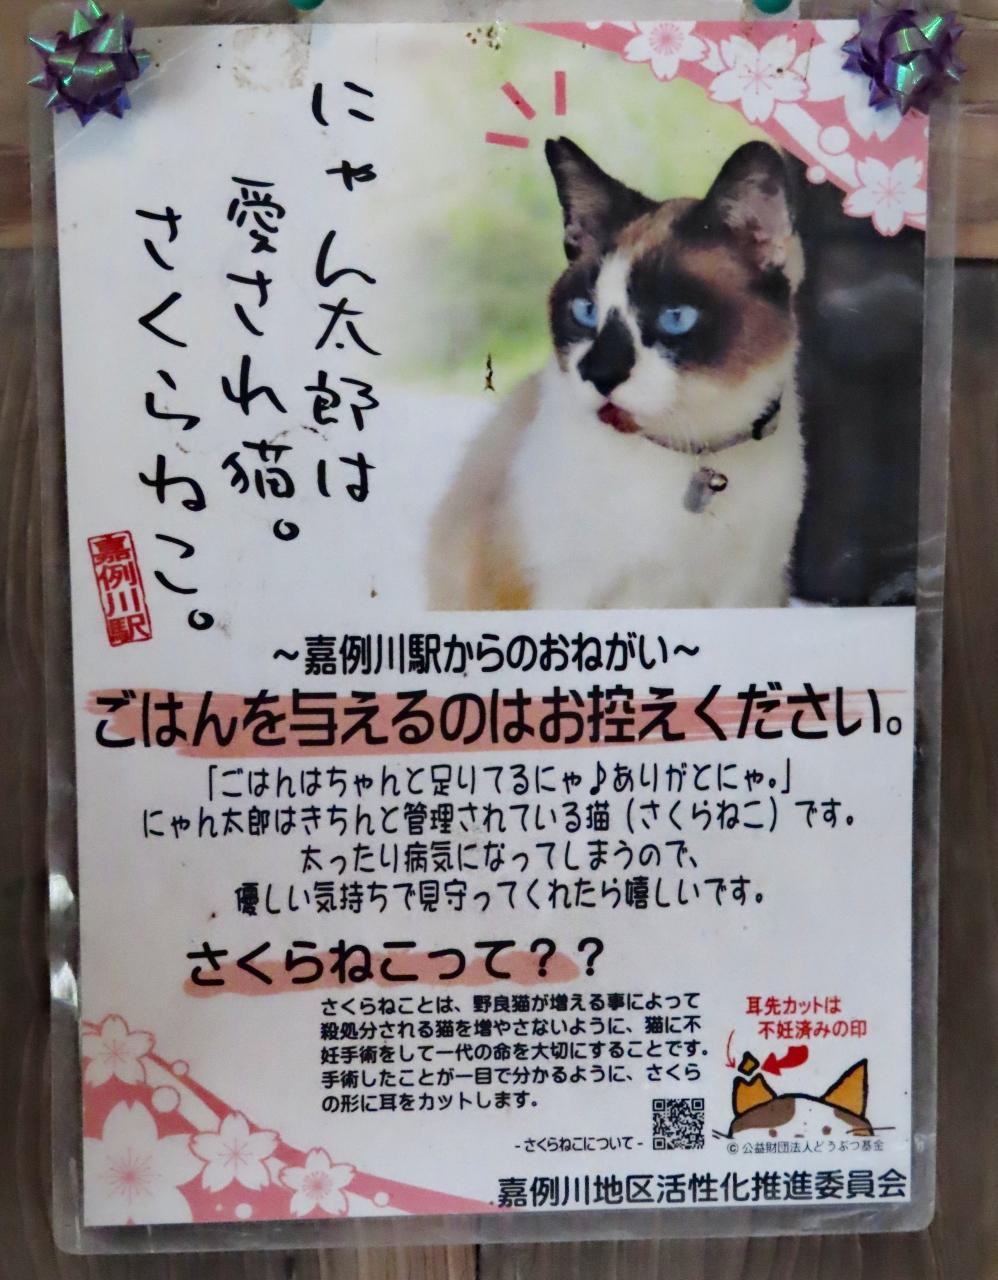 にゃん太郎は
愛され猫。
さくらねこ。
嘉例川駅
~嘉例川駅からのおねがい~
ごはんを与えるのはお控えください。
「ごはんはちゃんと足りてるにゃ♪ありがとにゃ。」
にゃん太郎はきちんと管理されている猫(さくらねこ)です。
太ったり病気になってしまうので、
優しい気持ちで見守ってくれたら嬉しいです。
さくらねこって??
さくらねことは、野良猫が増える事によって
殺処分される猫を増やさないように、猫に不
妊手術をして一代の命を大切にすることです。
手術したことが一目で分かるように、さくら
の形に耳をカットします。
耳先カットは
不妊済みの印
-さくらねこについて-
© 公益財団法人どうぶつ基金
嘉例川地区活性化推進委員会